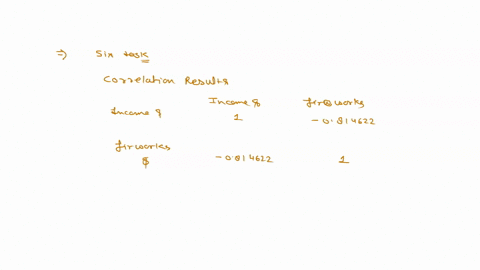 =) Six task
Correlation Results
Income $ fireworks
Income $ 1 -0.814622
firworks
$ -0.814622 1